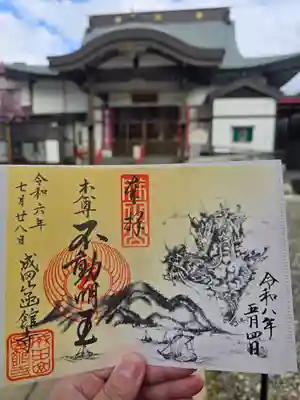 令和八年
五月四日
奉拝
本尊
不動明王
令和六年
七月廿八日
成田山函館寺